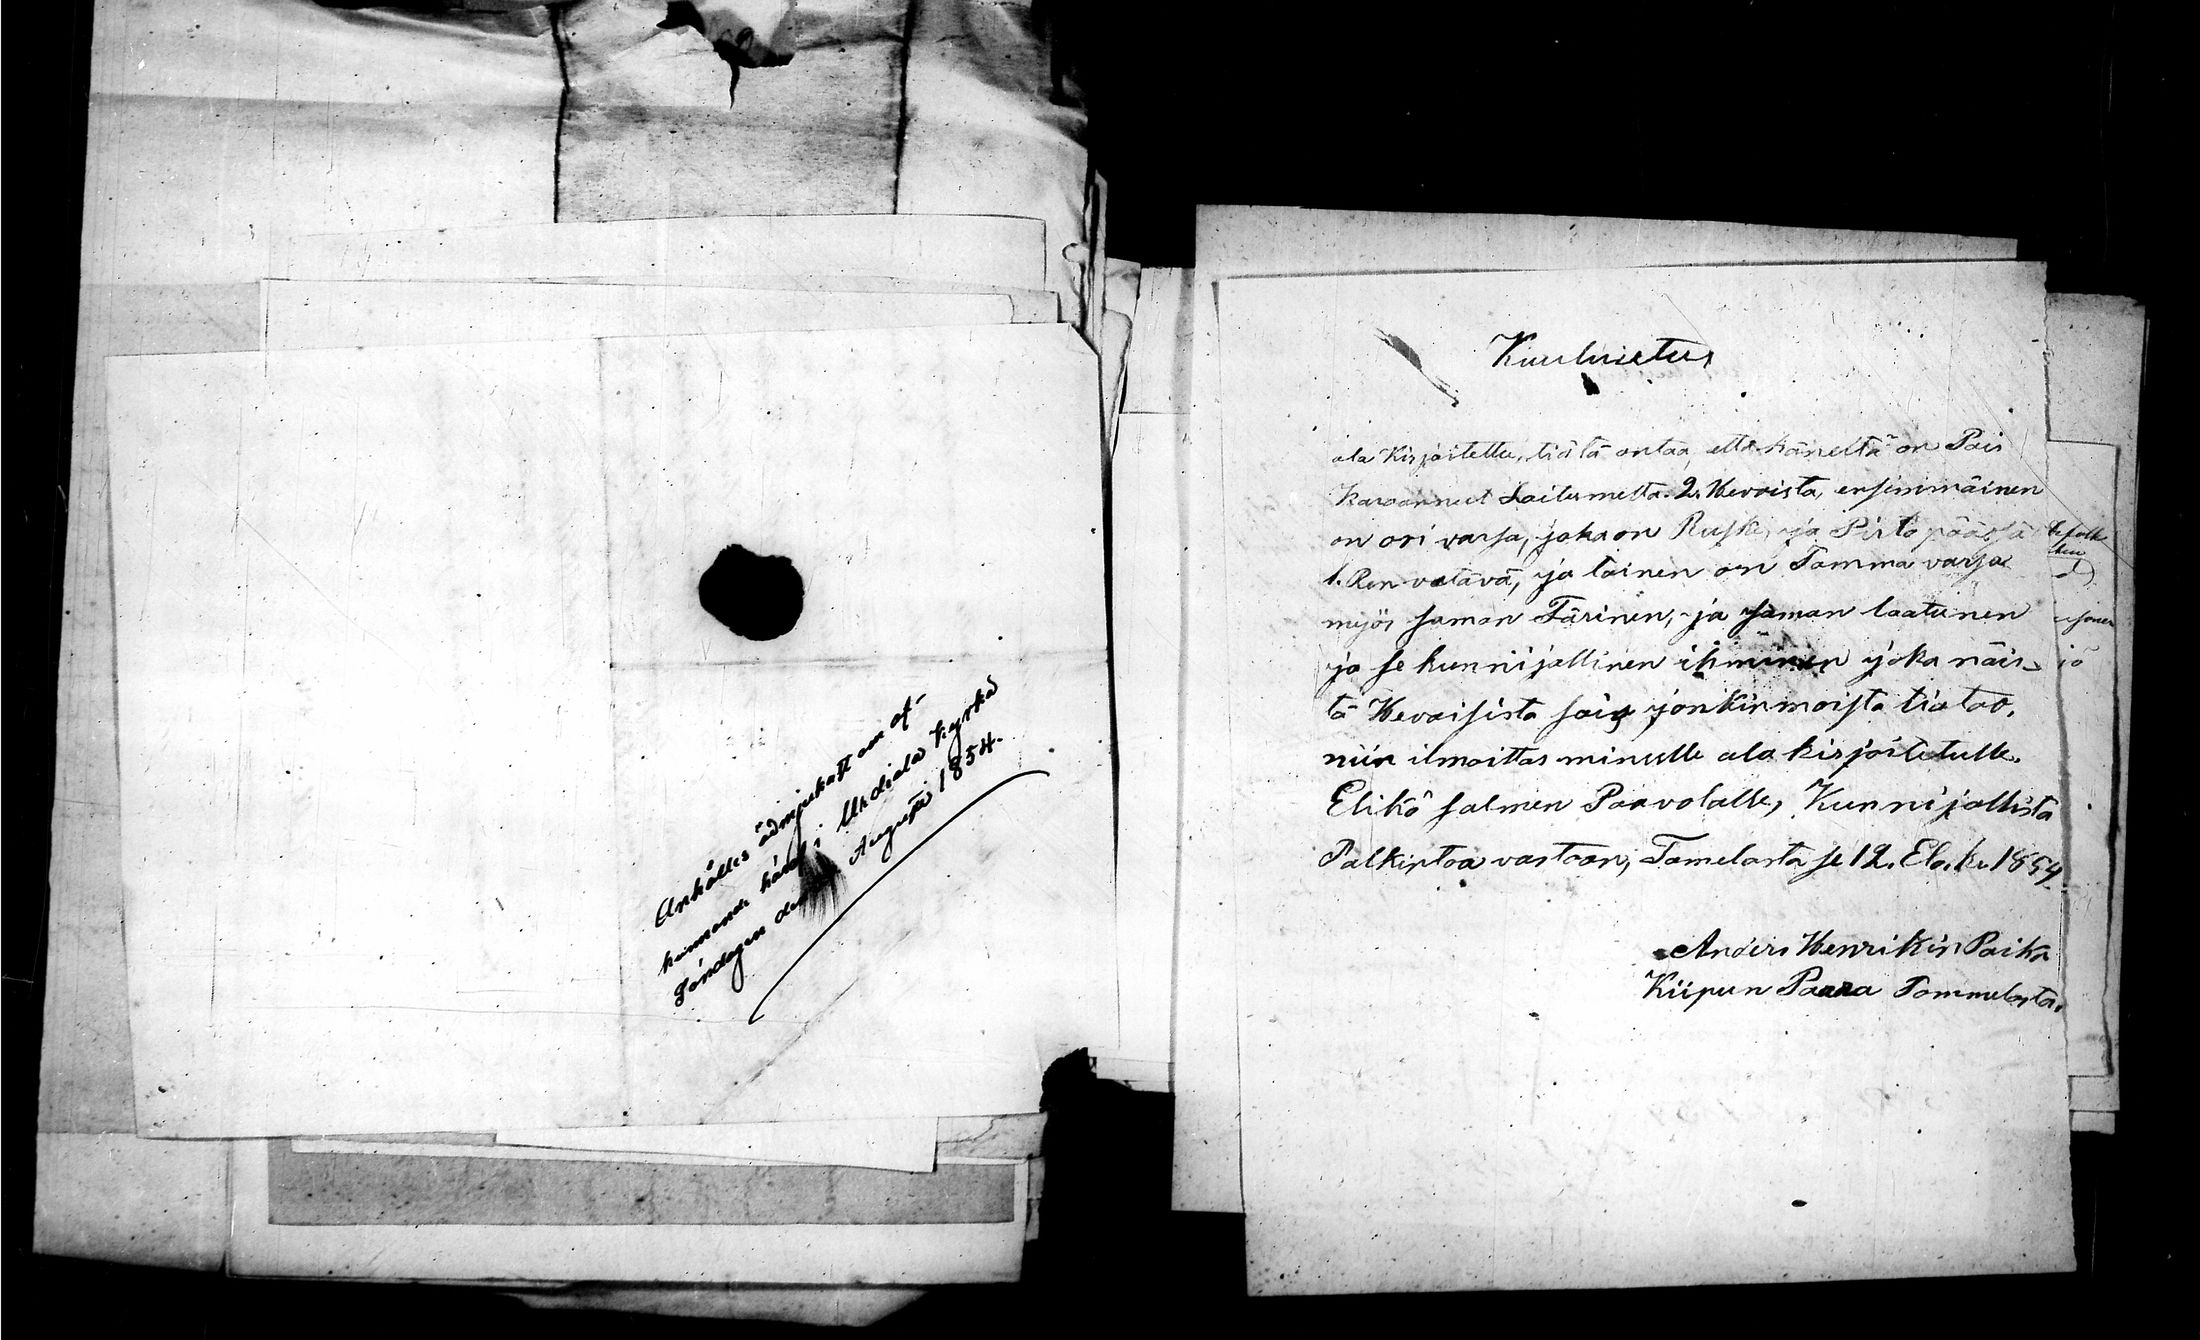 Anhålles ödmjukatt om af-
kunnande häraf i Urdiala kyrka
Söndagen den Augusti 1854.
Kuuluutus
ala Kirjoitettu, tiätä antaa, että häneltä on Pois
Karaannut Laitumelta. 2. Hevoista, ensimmäinen
on ori varsa, joka on Ruske, ja Pirto päässä
1. Ren vatava, ja toinen on Tamma varsa
myös saman Färinen, ja saman laatunen
ja se kunnijallinen ihminen joka näis-
tä Hevoisista sais jonkinmoista tiatoo,
niin ilmoittas minulle ala kirjoitetulle.
Elikö salmen Paavolalle, Kunnijallista
Palkintoa vastaan, Tamelasta se 12. Elo. k. 1854.
Anders Henrikin Poika
Kiipun Paara Tammelasta.